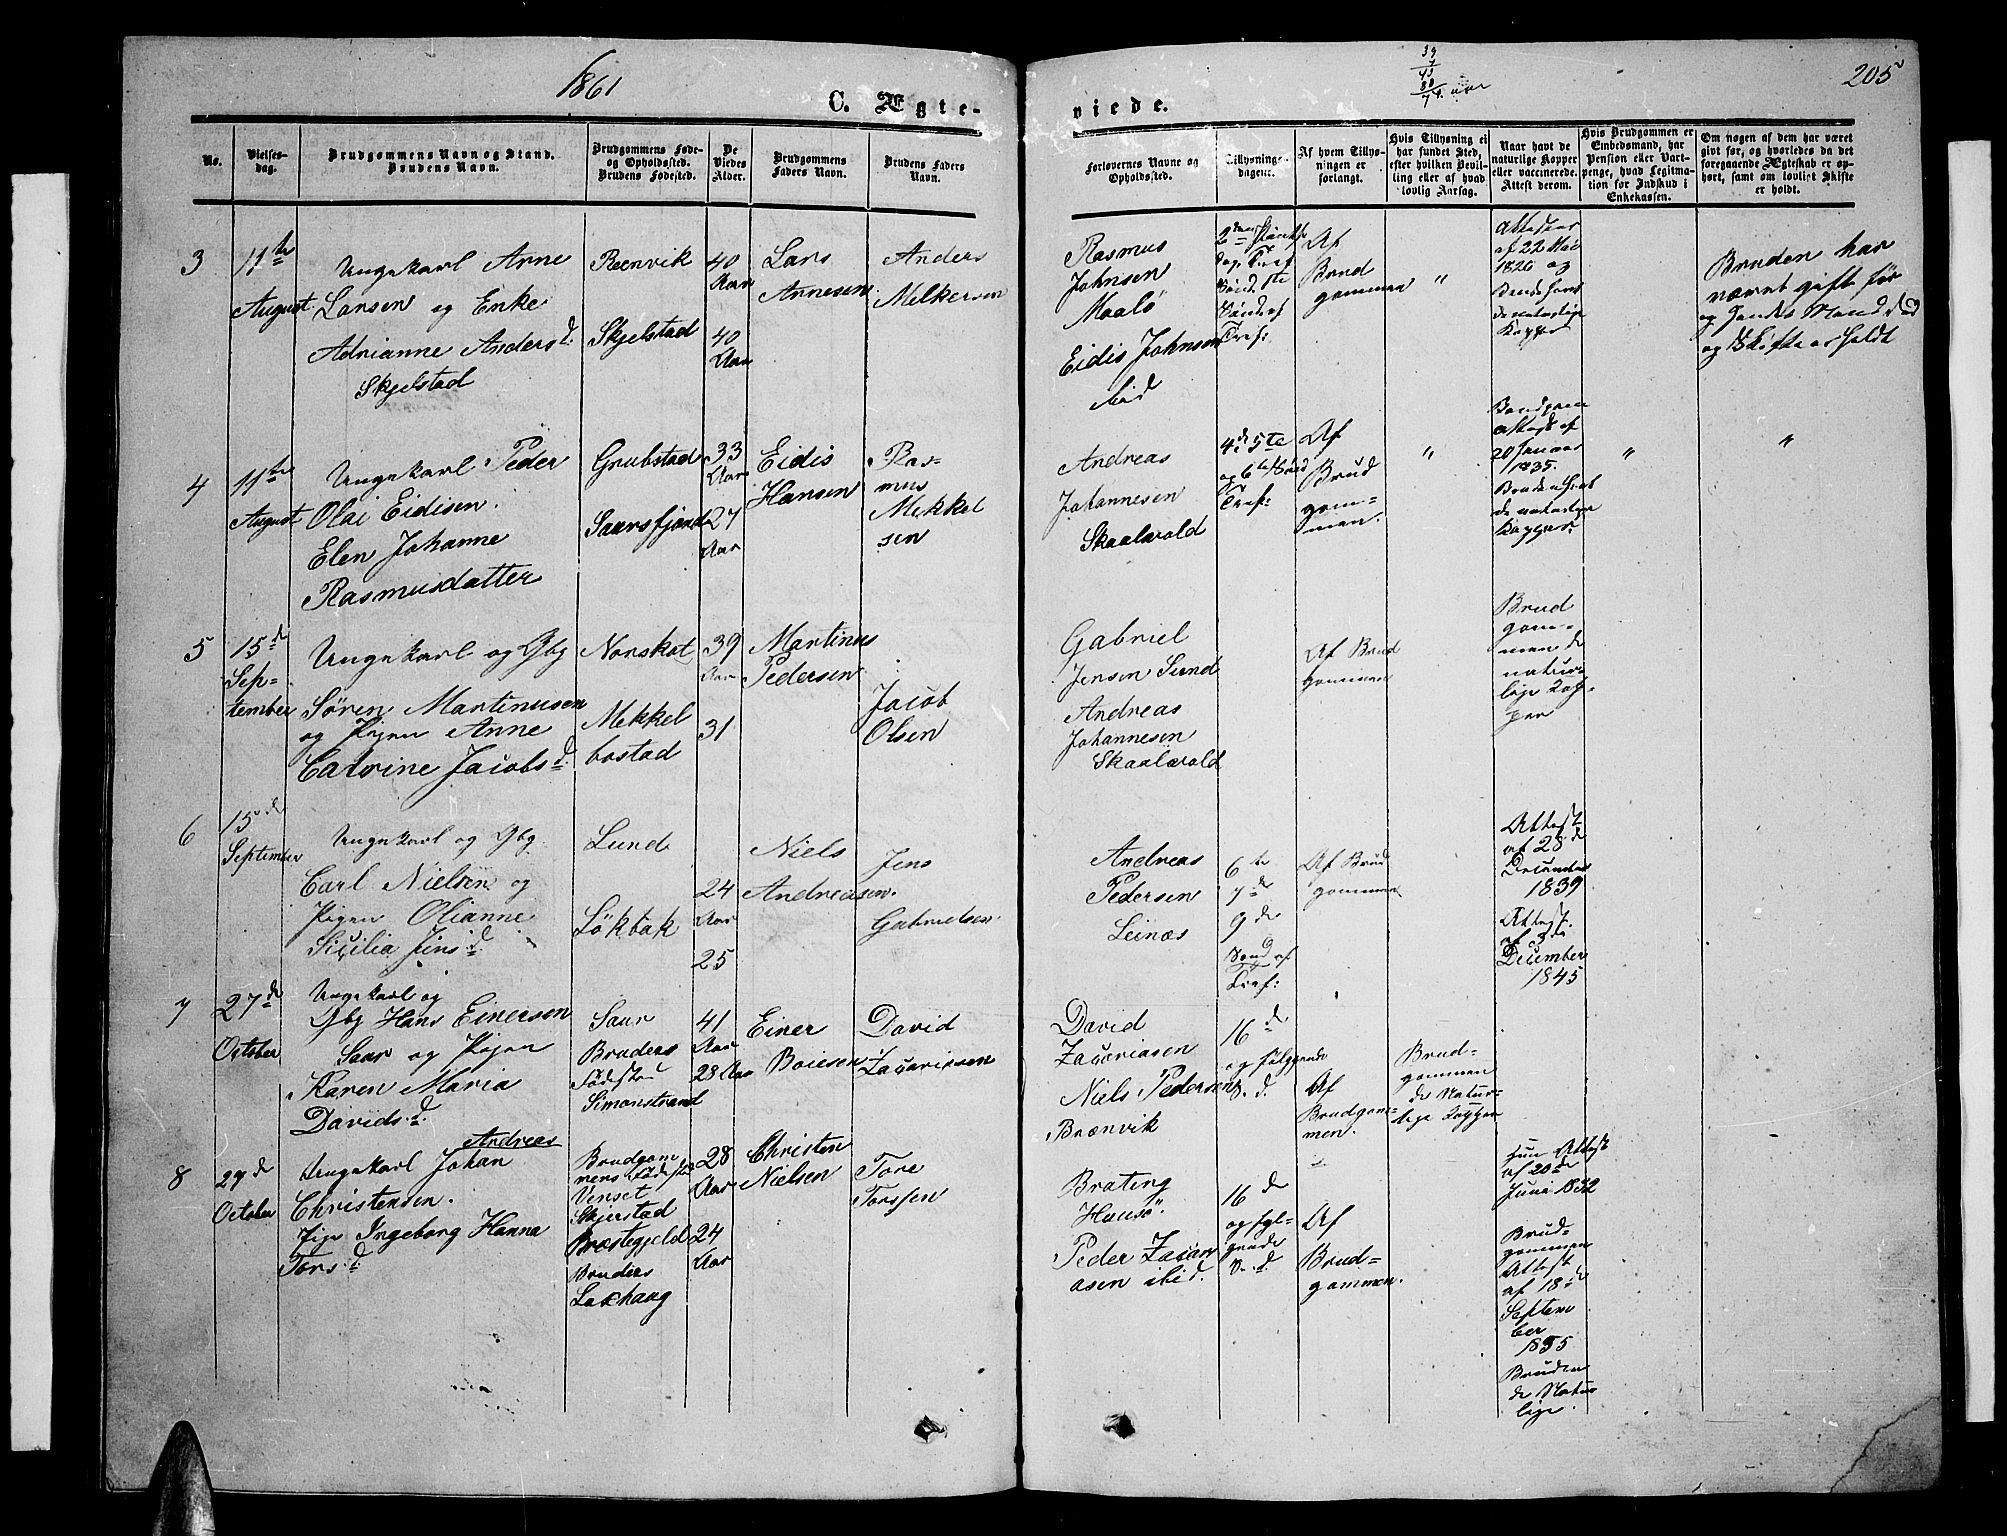 1861
C. Ægte-
viede.
205
39
No.
Vielses-
dag.
Brudgommens Navn og Stand.
Brudens Navn.
Brudgommens Føde-
og Opholdssted.
Brudens Fødested.
De
Viedes
Alder.
Brudgommens
Faders Navn.
Brudens Faders
Navn.
Forlovernes Navne og
Opholdssted.
Tillysnings-
dagene.
Af hvem Tillys-
ningen er
forlangt.
Hvis Tillysning ei
har fundet Sted,
efter hvilken Bevil-
ling eller af hvad
lovlig Aarsag.
Naar havt de
naturlige Kopper
eller vaccinerede.
Attest derom.
Hvis Brudgommen er
Embedsmand, har
Pension eller Vart-
penge, hvad Legitma-
tion for Indskud i
Enkekassen.
Om nogen af dem har været
gift før, og hvorledes da det
foregaaende Ægteskab er op-
hørt, samt om lovligt Skifte
er holdt.
3
11te
August
Ungekarl Arne
Larsen og Enke
Adrianne Andersd.
Skjelstad
Rænvik
Skjelstad
40
Aar
40
Aar
Lars
Arnesen
Anders
Melkersen
Rasmus
Johnsen
Maalø
Eidis Johnsen
ibid
Af
Brud
gommen
"
Attester
af 22 Mai
1820 og
de naturlige
Kopper
Bruden har
været gift før
og hendes Mand død
og Skifte er holdt
4
11te
August
Ungekarl Peder
Olai Eidisen.
Elen Johanne
Rasmusdatter
Grubstad
Saursfjord
33
Aar
27
Aar
Eidis
Hansen
Ras-
mus
Mekkel
sen
Andreas
Johannesen
Skaalsvold
4de 5te
og 6te Sønd
Tref:
Af
Brud
gom-
men.
"
Brudgom
attest af
20 Januar
1835.
Bruden havt
de naturlige
Kopper
"
"
5
15de
Sep-
tember
Ungekarl og Gbg
Søren Martinusen
og Pigen Anne
Catrine Jacobsd.
Norskot
Mekkel
bostad
39
Aar
31
Martinus
Pedersen
Jacob
Olsen
Gabriel
Jensen Sund
Andreas
Johannesen
Skaalsvold
Af Brud
gommen
Brud
gom-
men de
natur-
lige Kop-
per
6
15de
September
Ungekarl og Gbg
Carl Nielsen og
Pigen Olianne
Sicilia Jensd.
Lund
Løkbak
24
Aar
25
Niels
Andreasen.
Jens
Gabrielsen
Andreas
Pedersen
Leinæs
6te
7de
9de
Sønd af
Tref:
Af Brud
gommen
Attest
af 28de
December
1839
Attest
af 3de
December
1845
7
27de
October
Ungekarl og
Gbg Hans Einersen
Saur og Pigen
Karen Maria
Davidsd.
Saur
Bruders
Fødested
Simonstrand
41
Aar
28 Aar
Einer
Boiesen
David
Zacariasen
David
Zacariasen
Niels Pedersen
Brænvik
16de
og følgende
S. d.
Af
Brudgom-
men.
Brud-
gommen
de Natur-
lige Kopper
8
29de
October
Andreas
Ungekarl Johan
Christensen.
Pige Ingeborg Hanna
Torsd.
Brudgom
mens Fødested
Venset
Skjerstad
Præstegjeld
Bruders
Laxhaug
28
Aar
24
Aar
Christen
Nielsen
Tore
Torssen
Brating
Hunsø.
Peder Zacari
asen ibid.
16de
og føl-
gende
S. d.
Af
Brud-
gommen.
Hun Attest
af 20de
Juni 1832
Brud-
gommen
Attest
af 18de
Septem
ber
1835
Bruden
de Natur
lige.